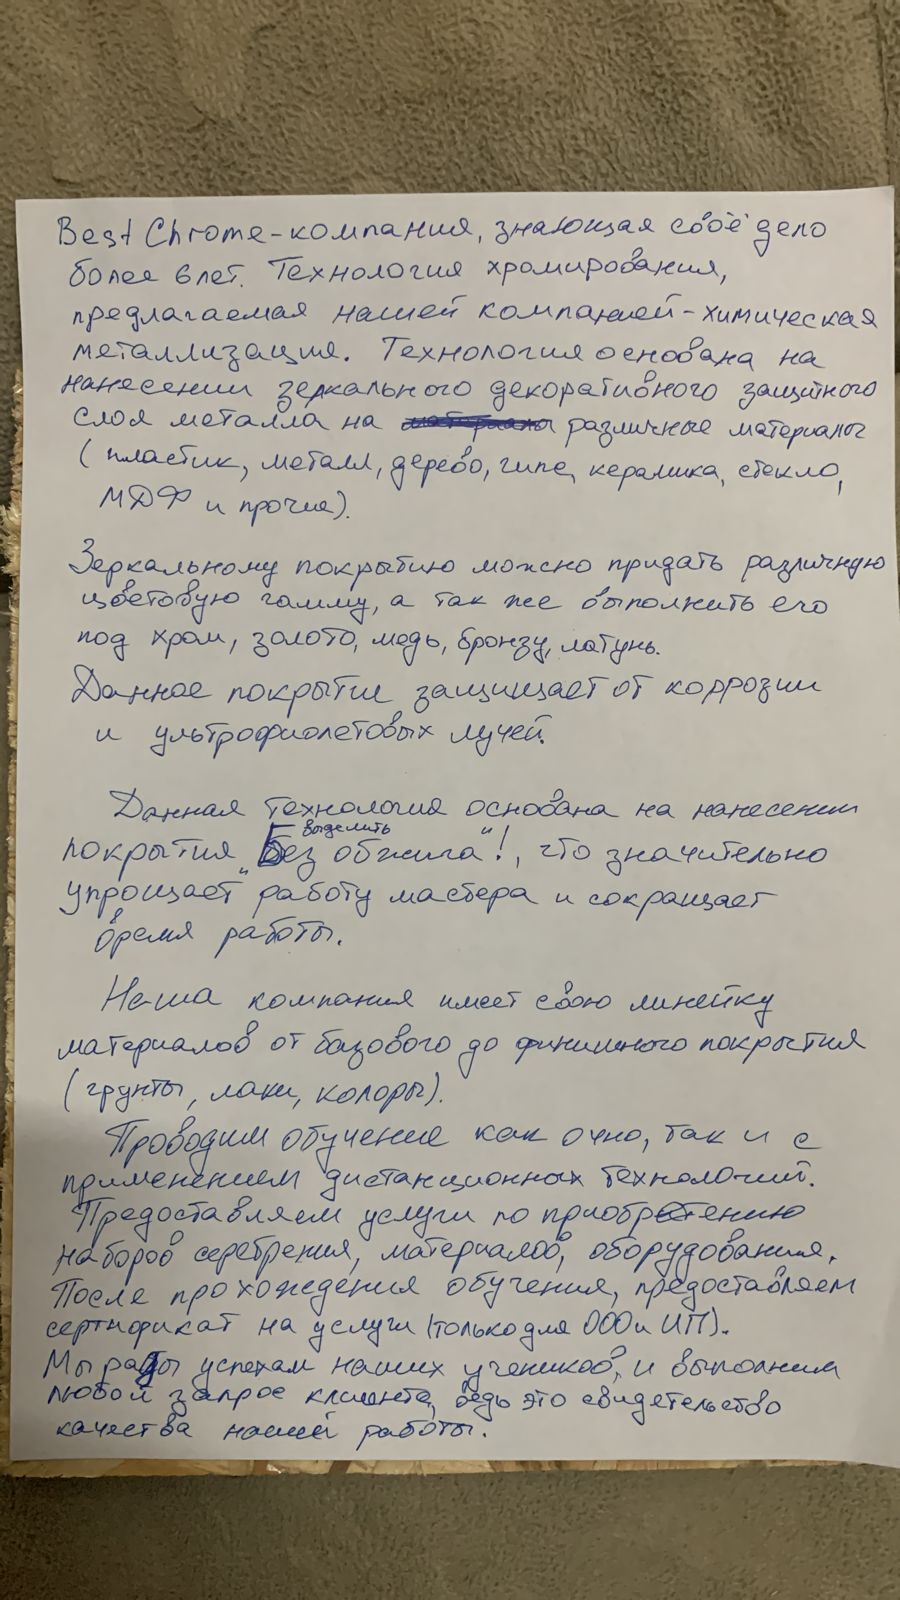 Best Chrome-компания, знающая своё дело
более 6 лет. Технология хромирования,
предлагаемая нашей компанией - химическая
металлизация. Технология основана на
нанесении зеркального декоративного защитного
слоя металла на материалы различные материалы
(пластик, металл, дерево, гипс, керамика, стекло,
МДФ и прочие).
Зеркальному покрытию можно придать различную
цветовую гамму, а так же выполнить его
под хром, золото, медь, бронзу, латунь.
Данное покрытие защищает от коррозии
и ультрофиолетовых лучей.
Данная технология основана на нанесении
выделить
покрытия "Без обжига"!, что значительно
упрощает работу мастера и сокращает
время работы.
Наша компания имеет свою линейку
материалов от базового до финишного покрытия
(грунты, лаки, колоры).
Проводим обучение как очно, так и с
применением дистанционных технологий.
Предоставляем услуги по приобретению
наборов серебрения, материалов, оборудования.
После прохождения обучения, предоставляем
сертификат на услуги (только для ООО и ИП).
Мы рады успехам наших учеников, и выполним
любой запрос клиента, ведь это свидетельство
качества нашей работы.